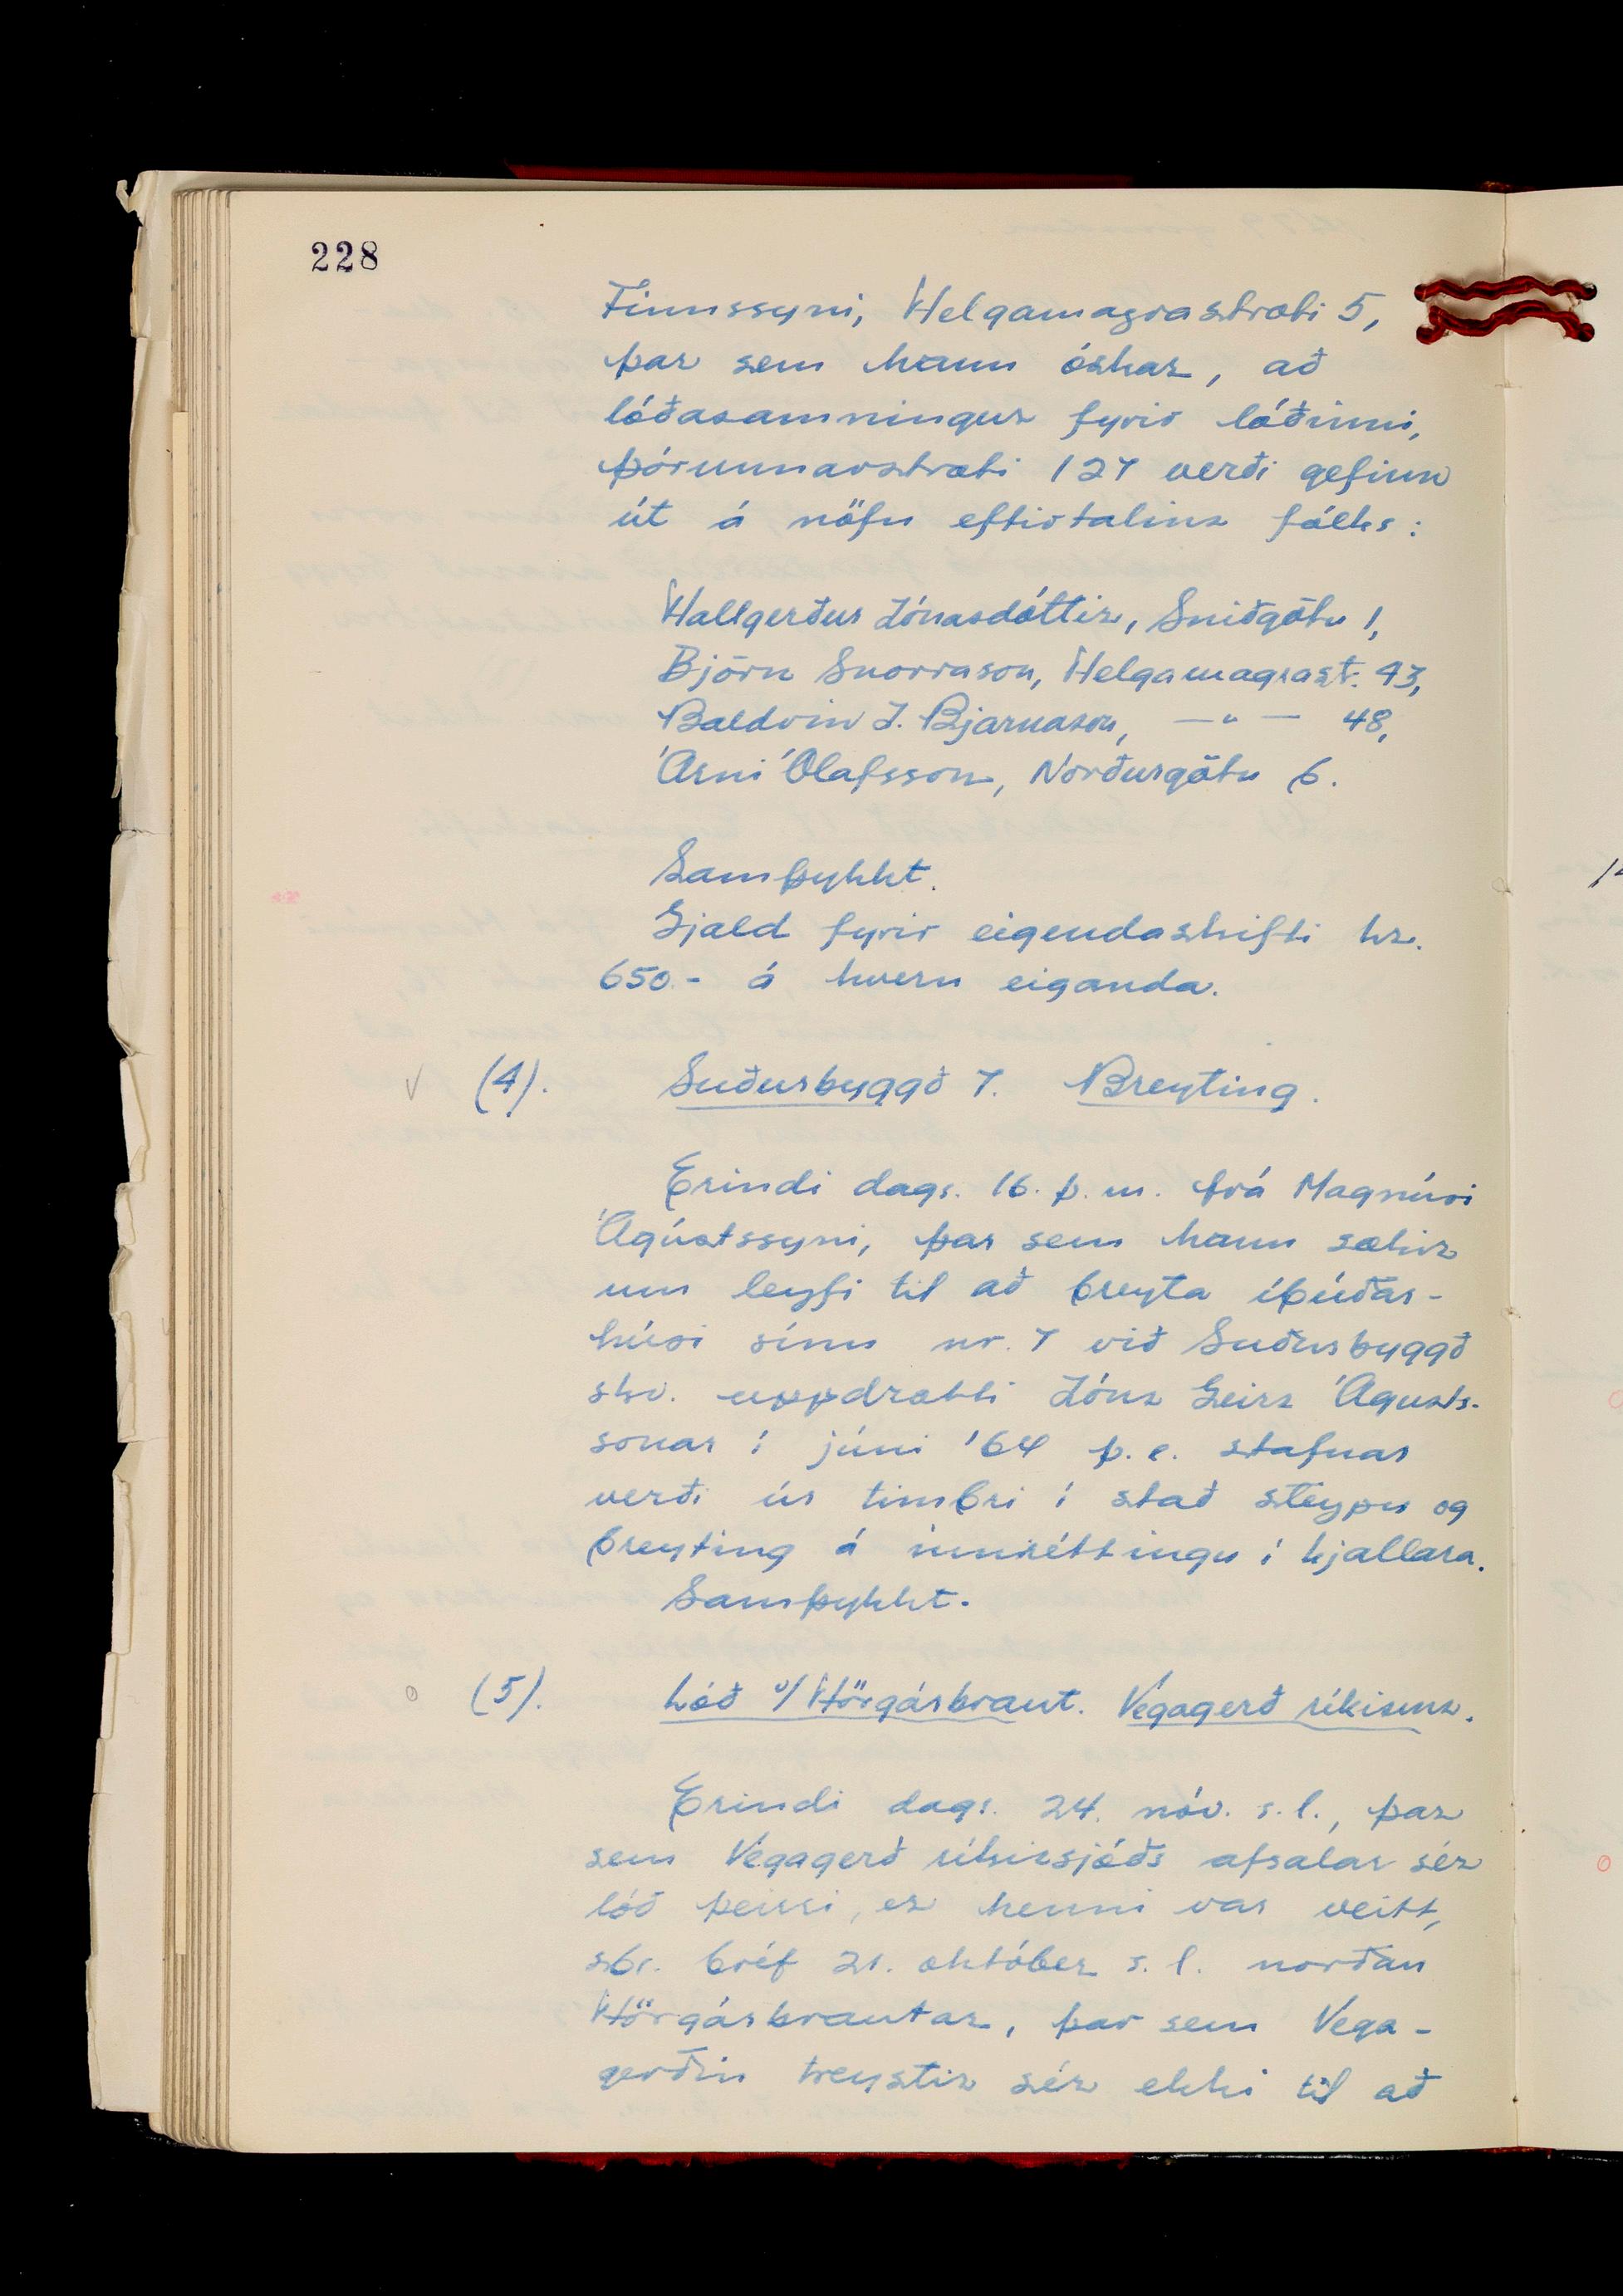 228
Finnssyni, Helgamagrastræti 5,
þar sem hann óskar, að
lóðasamningur fyrir lóðinni,
Þórunnarstræti 127 verði gefinn
út á nöfn eftirtalins fólks:
Hallgerður Jónasdóttir, Sniðgötu 1,
Björn Snorrason, Helgamagrast. 43,
Baldvin J. Bjarnason, —"— 48,
Árni Ólafsson, Norðurgötu 6.
Samþykkt.
Gjald fyrir eigendaskifti kr.
650.- á hvern eiganda.
(4). Suðurbyggð 7. Breyting.
Erindi dags. 16. þ.m. frá Magnúsi
Ágústssyni, þar sem hann sækir
um leyfi til að breyta íbúðar-
húsi sínu nr. 7 við Suðurbyggð
skv. uppdrætti Jóns Geirs Ágústs-
sonar í júní '64 þ.e. stafnar
verði úr timbri í stað steypu og
breyting á innréttingu í kjallara.
Samþykkt.
(5). Lóð v/Hörgárbraut. Vegagerð ríkisins.
Erindi dags. 24. nóv. s.l., þar
sem Vegagerð ríkissjóðs afsalar sér
lóð þeirri, er henni var veitt,
sbr. bréf 21. október s.l. norðan
Hörgárbrautar, þar sem Vega-
gerðin treystir sér ekki til að